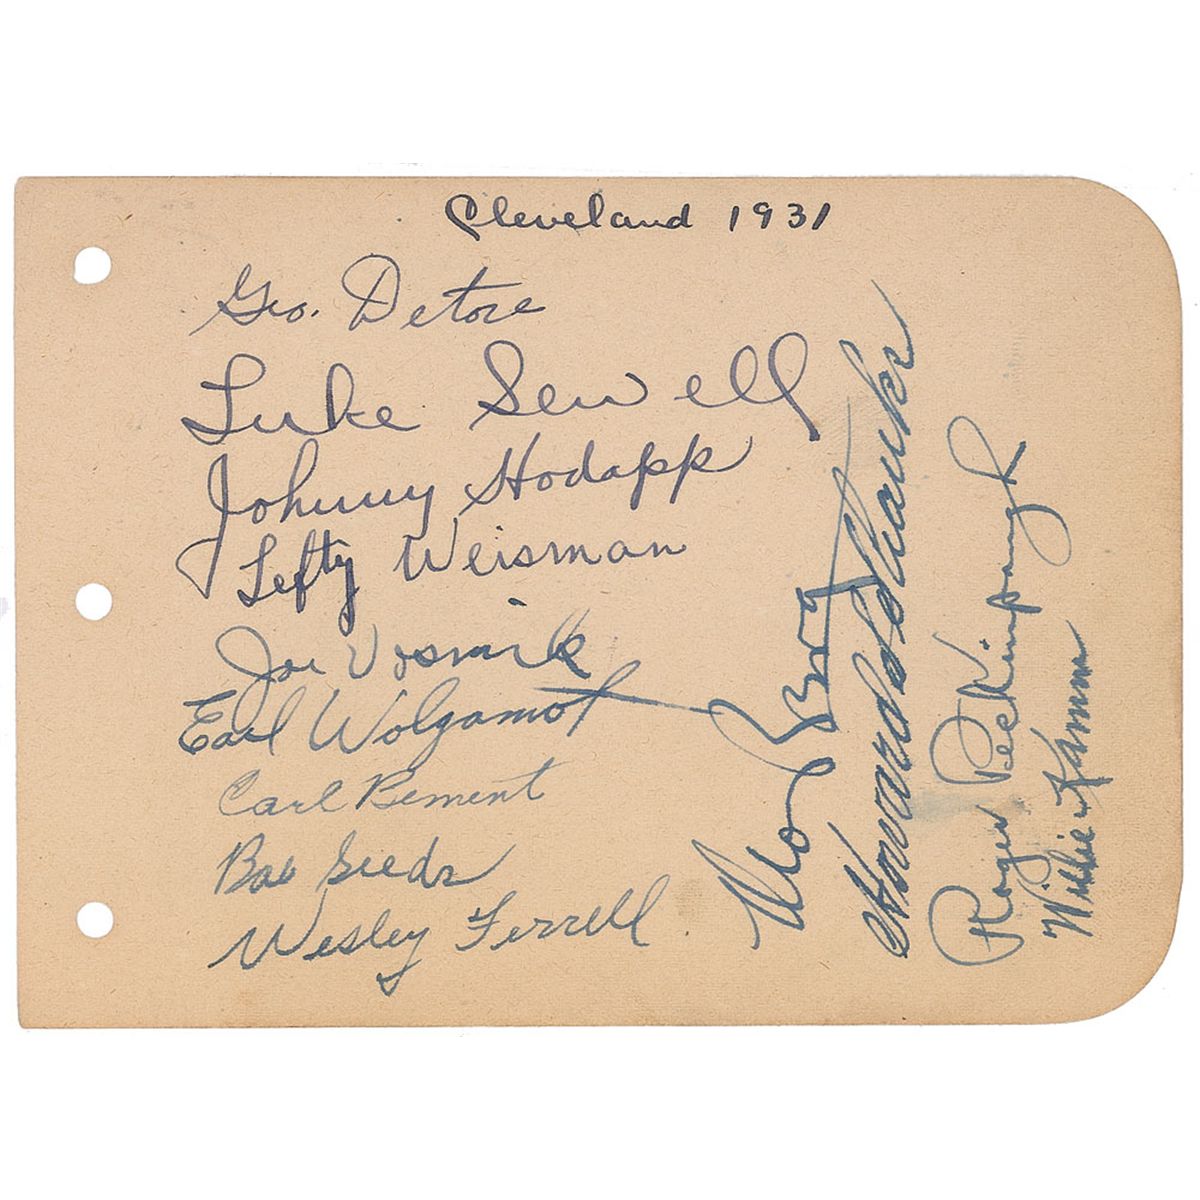 Cleveland 1931
Geo. Detore
Luke Sewell
Johnny Hodapp
Lefty Weisman
Joe Vosmik
Earl Wolgamot
Carl Bement
Bob Seeds
Wesley Ferrell
Moe Berg
Howard Shanks
Roger Peckinpaugh
Willie Kamm